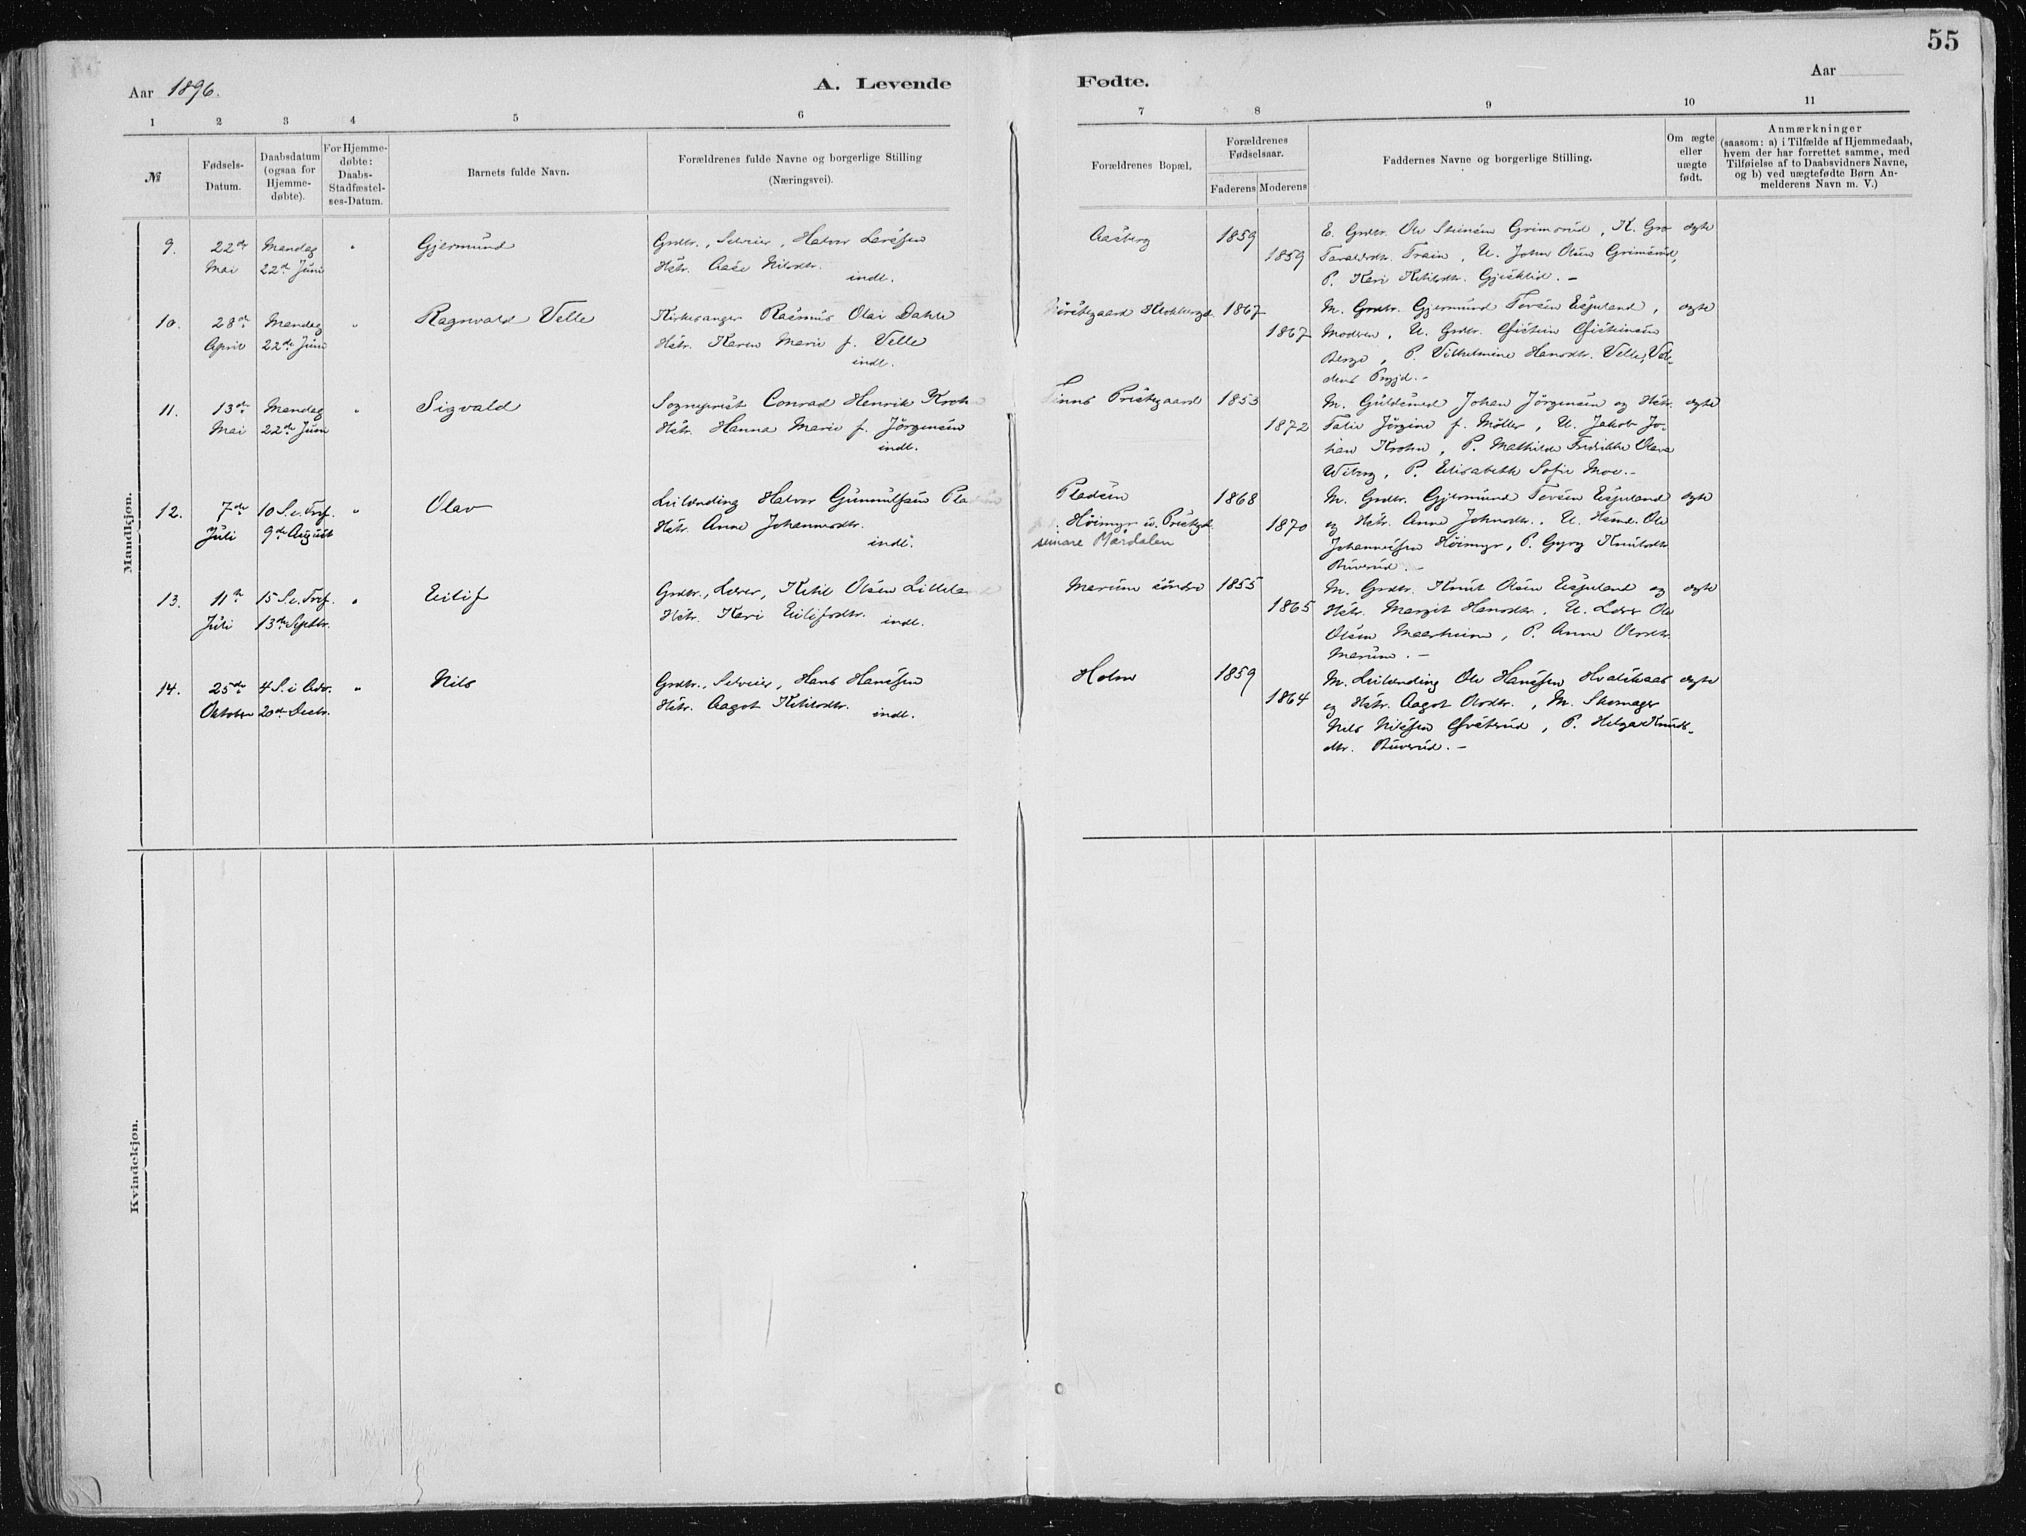 55
Aar 1896.
A. Levende
Fødte.
Aar
1 2 3 4 5 6
7 8 9 10 11
№
Fødsels-
Datum.
Daabsdatum
(ogsaa for
Hjemme-
døbte).
For Hjemme-
døbte:
Daabs-
Stadfæstel-
ses-Datum.
Barnets fulde Navn.
Forældrenes fulde Navne og borgerlige Stilling
(Næringsvei).
Forældrenes Bopæl.
Forældrenes
Fødselsaar.
Faderens Moderens
Faddernes Navne og borgerlige Stilling.
Om ægte
eller
uægte
født.
Anmærkninger
(saasom: a) i Tilfælde af Hjemmedaab,
hvem der har forrettet samme, med
Tilføielse af to Daabsvidners Navne,
og b) ved uægtefødte Børn An-
melderens Navn m. V.)
Mandkjøn.
9.
22de
Mai
Mandag
22de Juni
"
Gjermund
Grdbr., Selveier, Halvor Larssen
Hstr. Aase Nilsdtr.
indl.
Aasberg
1859
1859
E. Grdbr. Ole Steinsen Grimsrud, K. Gro
Taraldsdtr. Train, U. John Olsen Grimsrud,
P. Kari Ketilsdtr. Gjeshlid. -
ægte
10.
28de
April
Mandag
22de Juni
"
Ragnvald Velle
Kirkesanger Rasmus Olai Dahle
Hstr. Karen Marie f. Velle
indl.
1867
1867
M. Grdbr. Gjermund Torsen Esjuland,
Moderen, U. Grdbr. Øistein Øisteinsen
Berge, P. Vilhelmine Hansdtr. Velle, Vol-
dens Prgjd. -
ægte
11.
13de
Mai
Mandag
22de Juni
"
Sigvald
Sogneprest Conrad Henrik Krohn
Hstr. Hanna Marie f. Jörgensen
indl.
Prestegaard
1853
1872
M. Guldsmed Johan Jörgensen og Hstr.
Jörgine f. Möller, U. Jakob Jo-
han Krohn, P. Mathilde Fredrikke Olava
Wiborg, P. Elisabeth Sofie Moe. -
ægte
12.
7de
Juli
10 S. e. Tref.
9de August
"
Olav
Leilænding Halvor Gunnulfsen
Hstr. Anne Johannesdtr.
indl.
Pladsen
Höimyr u. Prestgd.
senere Mårdalen
1868
1870
M. Grdbr. Gjermund Torsen Esjuland
og Hstr. Anne Johnsdtr., U. Hsmd. Ole
Johannessen Höimyr, P. Gyrog Knutsdtr.
Buverud. -
ægte
13.
11te
Juli
15 S. e. Tref.
13de Septbr.
"
Eilif
Grdbr., Lærer, Ketil Olsen
Hstr. Kari Eilifsdtr.
indl.
Marum söndre
1855
1865
M. Grdbr. Knut Olsen Esjuland og
Hstr. Margit Hansdtr., U. Lærer Ole
Olsen Maarheim, P. Anne Olsdtr.
Marum. -
ægte
14.
25de
Oktober
4 S. i Adv.
20de Decbr.
"
Nils
Grdbr., Selveier, Hans Hanssen
Hstr. Aagot Ketilsdtr.
indl.
Holm
1859
1864
M. Leilænding Ole Hanssen Hvalskaas
og Hstr. Aagot Olsdtr., M. Skomager
Nils Nilssen Övsterud, P. Helga Knuds-
dtr. Buverud. -
ægte
Kvindekjøn.